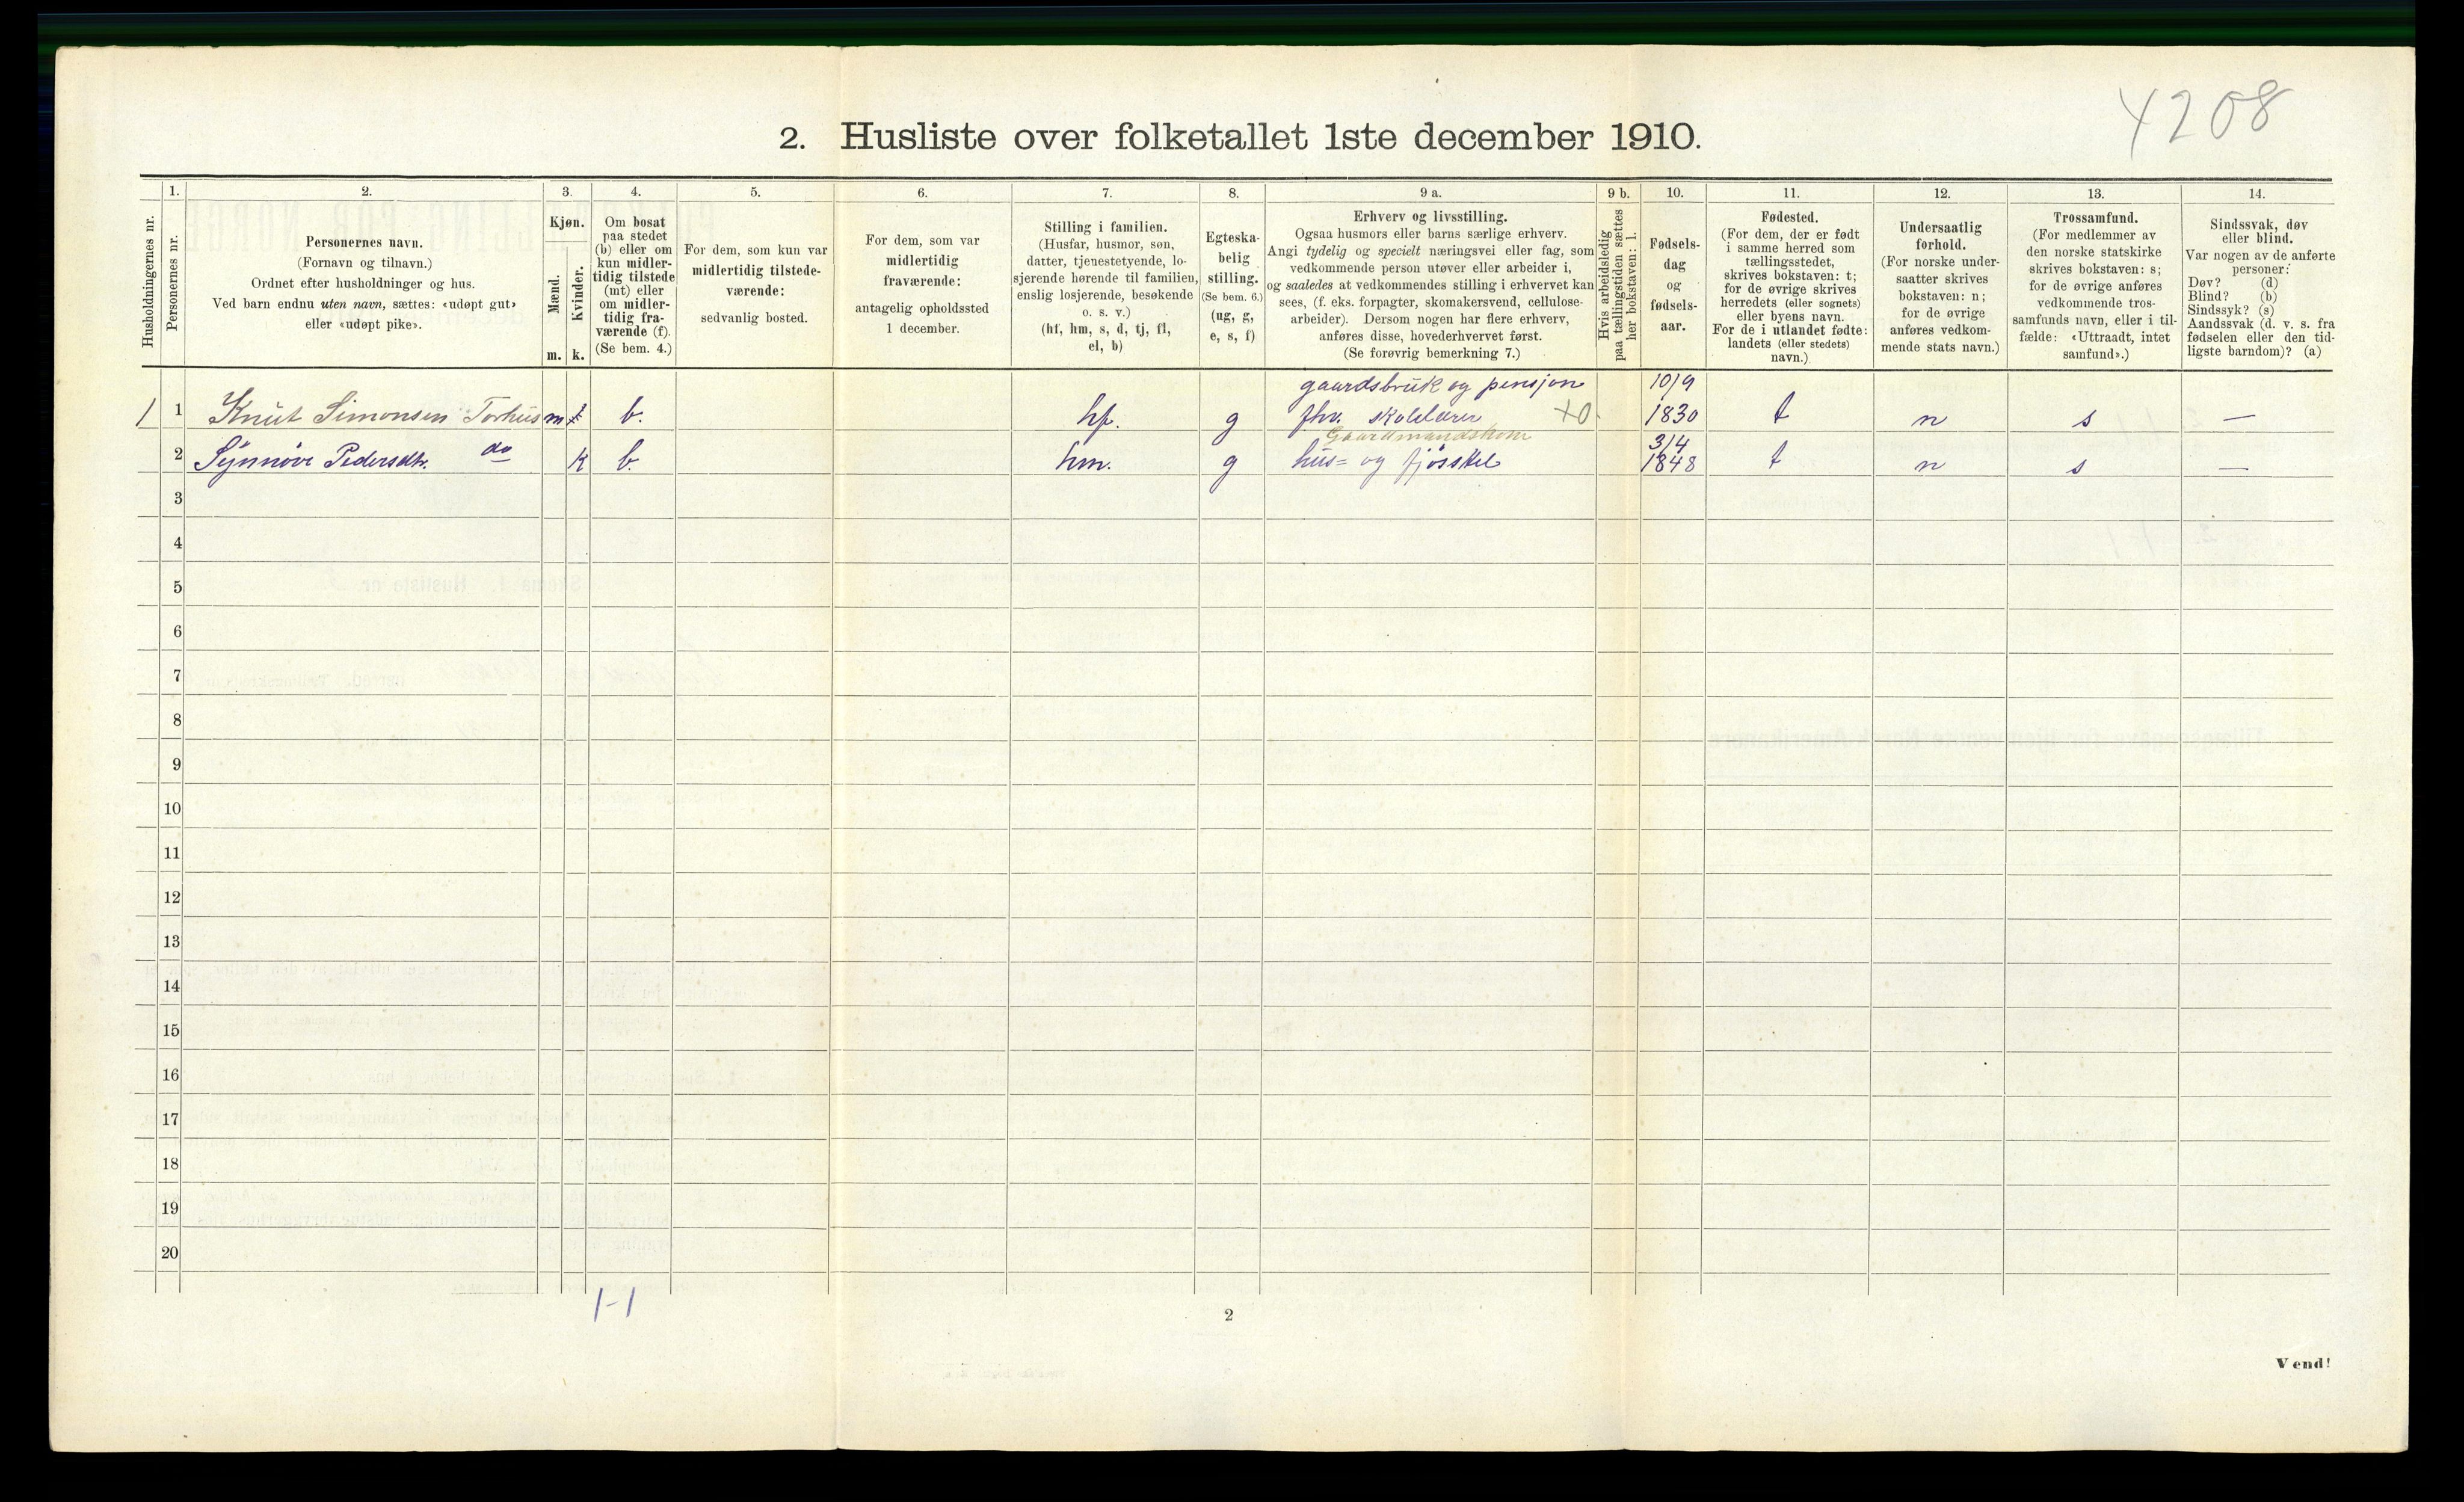 4208
2. Husliste over folketallet 1ste december 1910.
1. 2. 3. 4. 5. 6. 7. 8. 9 a. 9 b. 10. 11. 12. 13. 14.
Husholdningernes nr.
Personernes nr.
Personernes navn.
(Fornavn og tilnavn.)
Ordnet efter husholdninger og hus.
Ved barn endnu uten navn, sættes: «udøpt gut»
eller «udøpt pike».
Kjøn.
Mænd.
Kvinder.
m. k.
Om bosat
paa stedet
(b) eller om
kun midler-
tidig tilstede
(mt) eller
om midler-
tidig fra-
værende (f).
(Se bem. 4.)
For dem, som kun var
midlertidig tilstede-
værende:
sedvanlig bosted.
For dem, som var
midlertidig
fraværende:
antagelig opholdssted
1 december.
Stilling i familien.
(Husfar, husmor, søn,
datter, tjenestetyende, lo-
sjerende hørende til familien,
enslig losjerende, besøkende
o. s. v.)
(hf, hm, s, d, tj, fl,
el, b)
Egteska-
belig
stilling.
(Se bem. 6.)
(ug, g,
e, s, f)
Erhverv og livsstilling.
Ogsaa husmors eller barns særlige erhverv.
Angi tydelig og specielt næringsvei eller fag, som
vedkommende person utøver eller arbeider i,
og saaledes at vedkommendes stilling i erhvervet kan
sees, (f. eks. forpagter, skomakersvend, cellulose-
arbeider). Dersom nogen har flere erhverv,
anføres disse, hovederhvervet først.
(Se forøvrig bemerkning 7.)
Hvis arbeidsledig
paa tællingstiden sættes
her bokstaven: l.
Fødsels-
dag
og
fødsels-
aar.
Fødested.
(For dem, der er født
i samme herred som
tællingsstedet,
skrives bokstaven: t;
for de øvrige skrives
herredets (eller sognets)
eller byens navn.
For de i utlandet fødte:
landets (eller stedets)
navn.)
Undersaatlig
forhold.
(For norske under-
saatter skrives
bokstaven: n;
for de øvrige
anføres vedkom-
mende stats navn.)
Trossamfund.
(For medlemmer av
den norske statskirke
skrives bokstaven: s;
for de øvrige anføres
vedkommende tros-
samfunds navn, eller i til-
fælde: «Uttraadt, intet
samfund».)
Sindssvak, døv
eller blind.
Var nogen av de anførte
personer:
Døv? (d)
Blind? (b)
Sindssyk? (s)
Aandssvak (d. v. s. fra
fødselen eller den tid-
ligste barndom)? (a)
gaardsbruk og pensjon 10/9
1 1 Knut Simonsen Torhus m b. hf. g fhv. skolelærer +0 1830 t n s —
Gaardmandskone 3/4
2 Synnøve Pedersdtr. do k b. hm. g hus= og fjösstel 1848 t n s —
3
4
5
6
7
8
9
10
11
12
13
14
15
16
17
18
19
20
1-1
2
Vend!